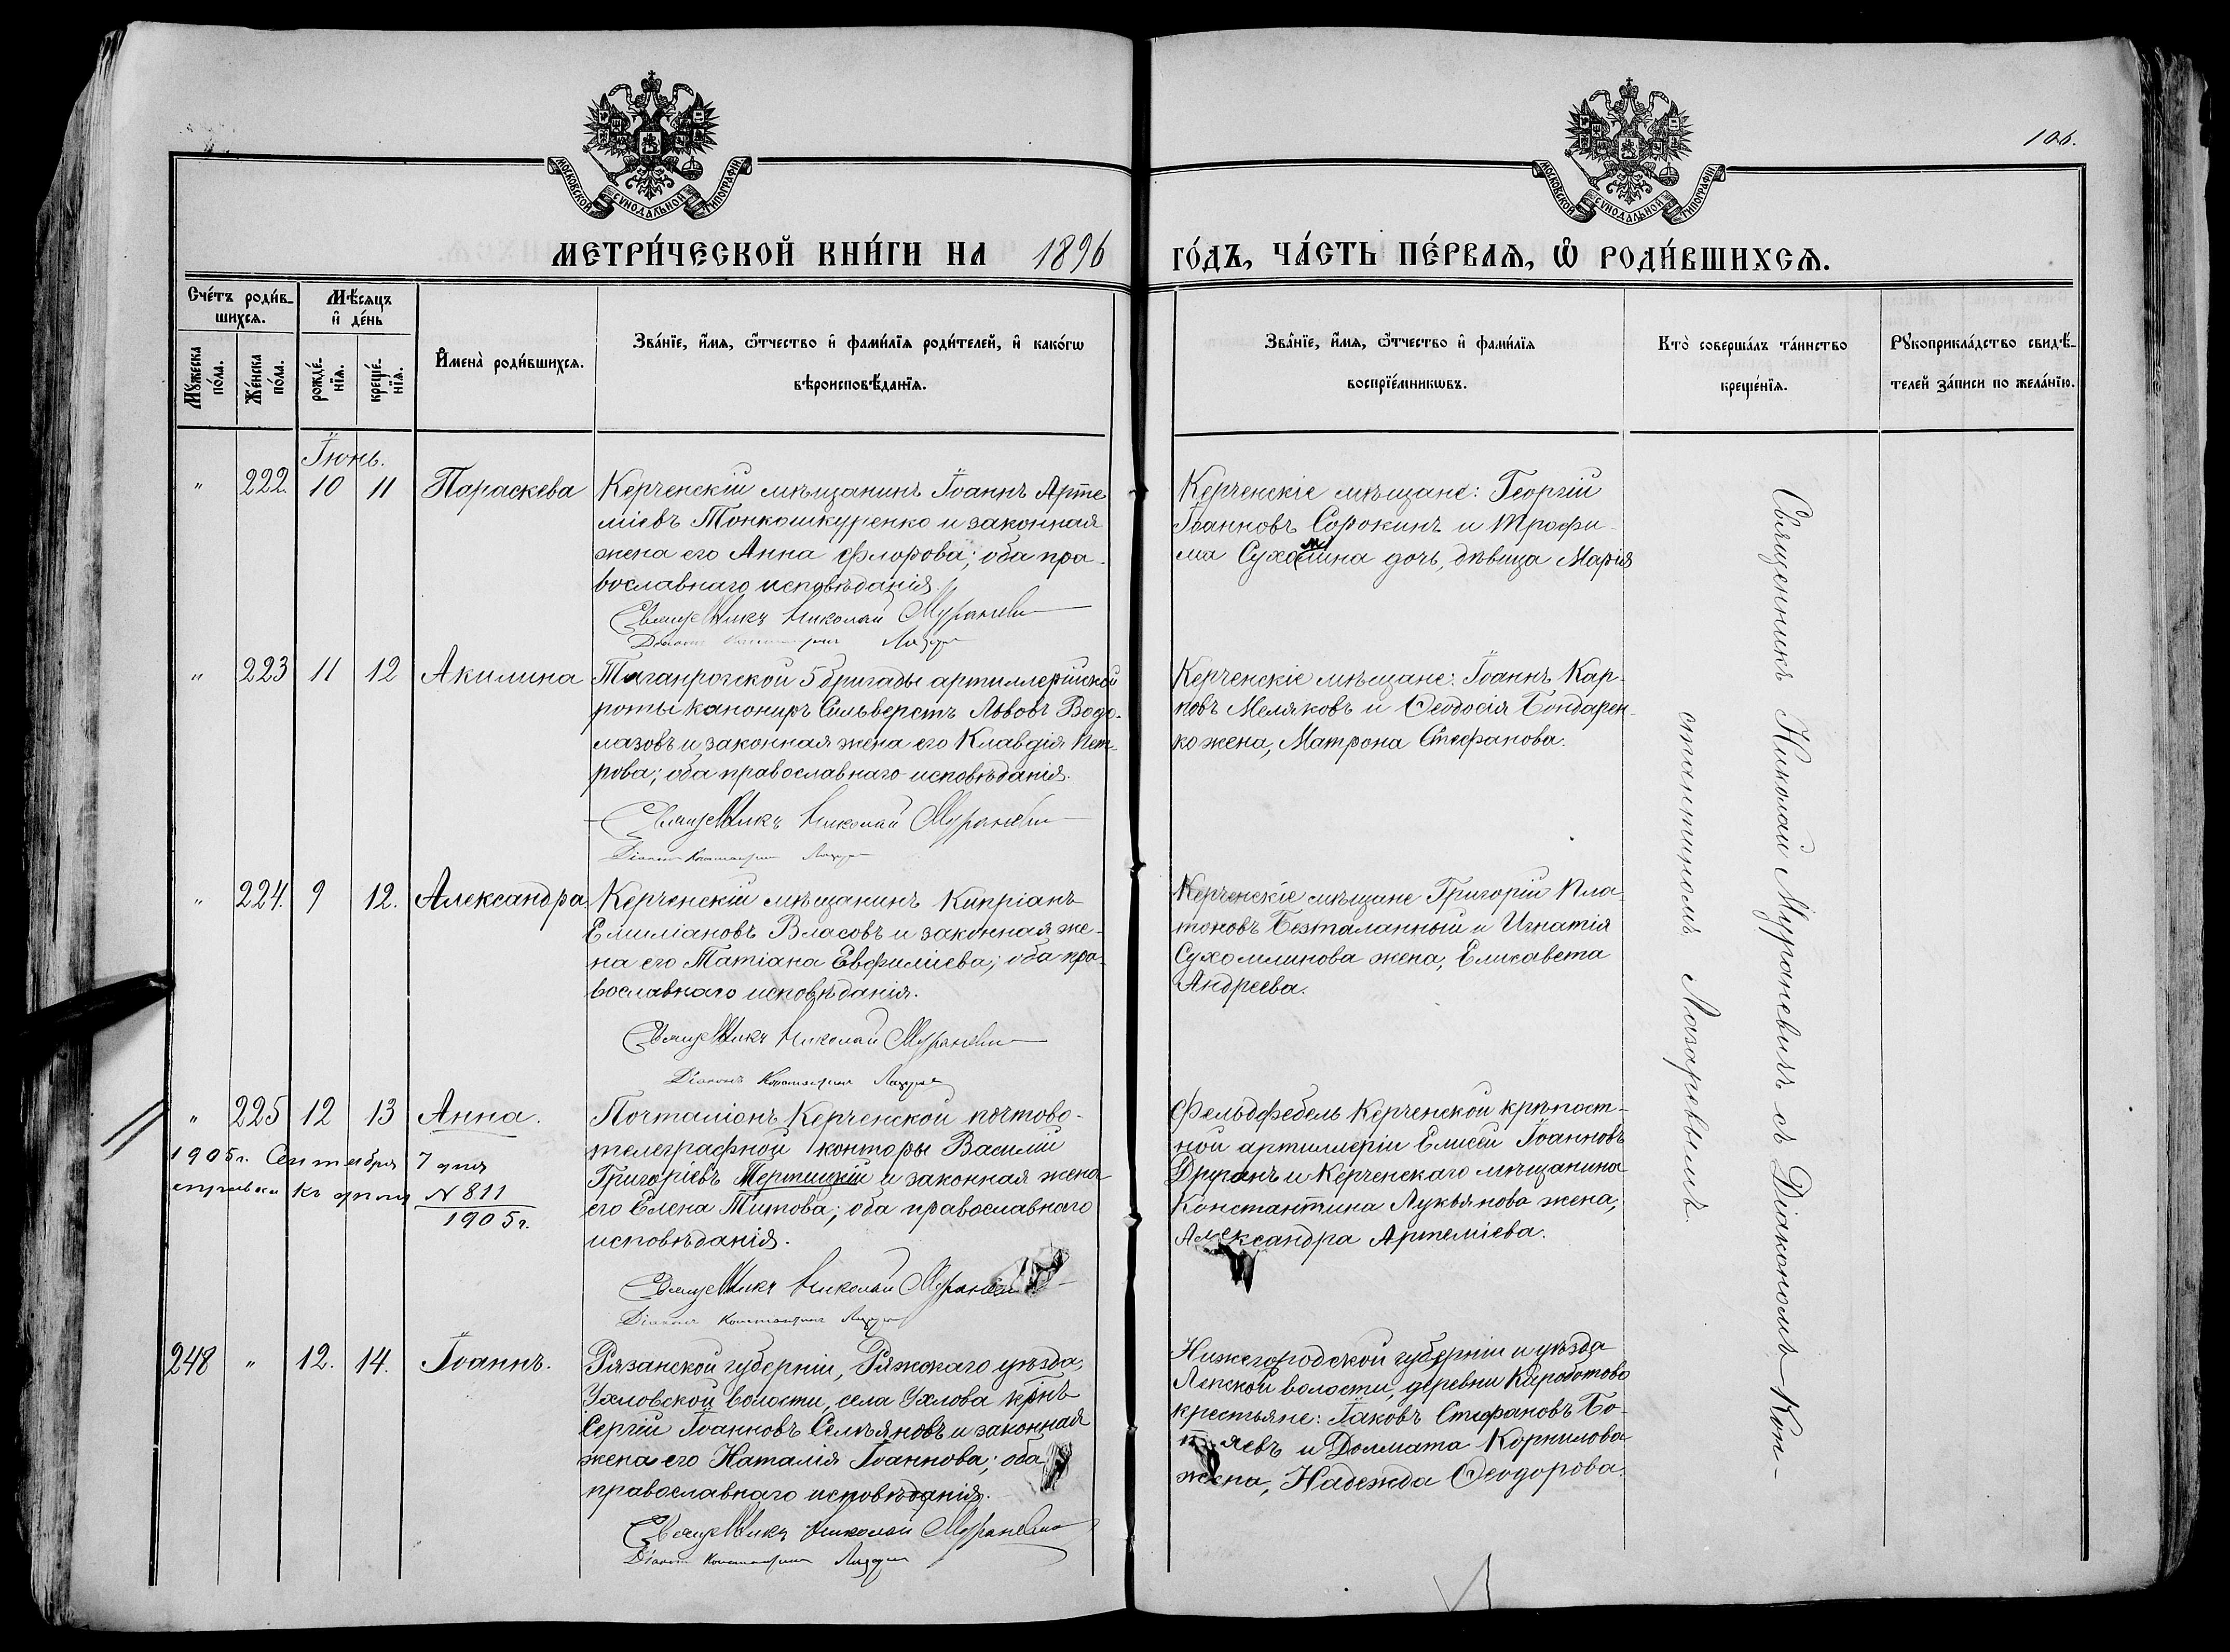 106.
МОСКОВСКОЙ СѴНОДАЛЬНОЙ ТИПОГРАФІИ
МОСКОВСКОЙ СѴНОДАЛЬНОЙ ТИПОГРАФІИ
МЕТРИ́ЧЕСКОЙ КНИ́ГИ НА 1896 ГО́ДЪ, ЧА́СТЬ ПЕ́РВАѦ, Ѽ РОДИ́ВШИХСѦ.
Сче́тъ роди́в-
шихсѧ.
Мꙋ́жеска
по́ла.
Же́нска
по́ла.
Мѣ́сѧцъ
и҆ де́нь
рожде́-
нїѧ.
креще́-
нїѧ.
И҆мена̀ роди́вшихсѧ.
Зва́нїе, и҆́мѧ, ѻ҆́тчество и҆ фами́лїѧ роди́телей, и҆ како́гѡ
вѣроисповѣ́данїѧ.
Зва́нїе, и҆́мѧ, ѻ҆́тчество и҆ фами́лїѧ
воспрїе́мникѡвъ.
Кто̀ соверша́лъ та́инство
креще́нїѧ.
Рꙋкоприкла́дство свидѣ́-
телей за́писи по жела́нїю.
Іюнь.
" 222. 10 11 Параскева
Керченскій мѣщанинъ Іоаннъ Арте
міевъ Тонкошкуренко и законная
жена его Анна Флорова; оба пра-
вославнаго исповѣданія.
Священникъ Николай Мураневич
Діаконъ Константинъ Лазарев
Керченскіе мѣщане: Георгій
Іоанновъ Сорокинъ и Трофи-
ма дочь, дѣвица Марія
" 223 11 12 Акилина
Таганрогской 5 бригады артиллерійской
роты канониръ Сильверстъ Львовъ Водо-
лазовъ и законная жена его Клавдія Пет-
рова; оба православнаго исповѣданія.
Священникъ Николай Мураневич
Діаконъ Константинъ Лазарев
Керченскіе мѣщане: Іоаннъ Кар-
повъ Меляковъ и Ѳеодосія Бондарен-
ко жена, Матрона Стефанова.
" 224. 9 12. Александра
Керченскій мѣщанинъ Кипріанъ
Емиліановъ Власовъ и законная же-
на его Татіана Евфиміева; оба пра-
вославнаго исповѣданія.
Священникъ Николай Мураневич
Діаконъ Константинъ Лазарев
Керченскіе мѣщане Григорій Пла-
тоновъ Безталанный и Игнатія
Сухомлинова жена, Елисавета
Андреева.
" 225 12 13 Анна.
1905 г. Сентября 7 дня
справка къ № 811
1905 г.
Почталіонъ Керченской почтово-
телеграфной конторы Василій
Григоріевъ Тертицкій и законная жена
его Елена Титова; оба православнаго
исповѣданія.
Священникъ Николай Мураневич
Діаконъ Константинъ Лазарев
Фельдфебель Керченской крѣпост-
ной артиллеріи Елисей Іоанновъ
Друганъ и Керченскаго мѣщанина
Константина Лукьянова жена,
Александра Артеміева.
248 " 12. 14. Іоаннъ.
Рязанской губерніи, Ряжскаго уѣзда,
Ухловской волости, села Ухлова кр̃нъ
Сергій Іоанновъ Семьяновъ и законная
жена его Наталія Іоаннова; оба
православнаго исповѣданія.
Священникъ Николай Мураневич
Діаконъ Константинъ Лазарев
Нижегородской губерніи и уѣзда
волости, деревни
крестьяне: Іаковъ Стефановъ
и Долмата Корнилова
жена, Надежда Ѳеодорова.
Священникъ Николай Мураневичъ съ Діакономъ Кон-
стантиномъ Лазаревымъ.